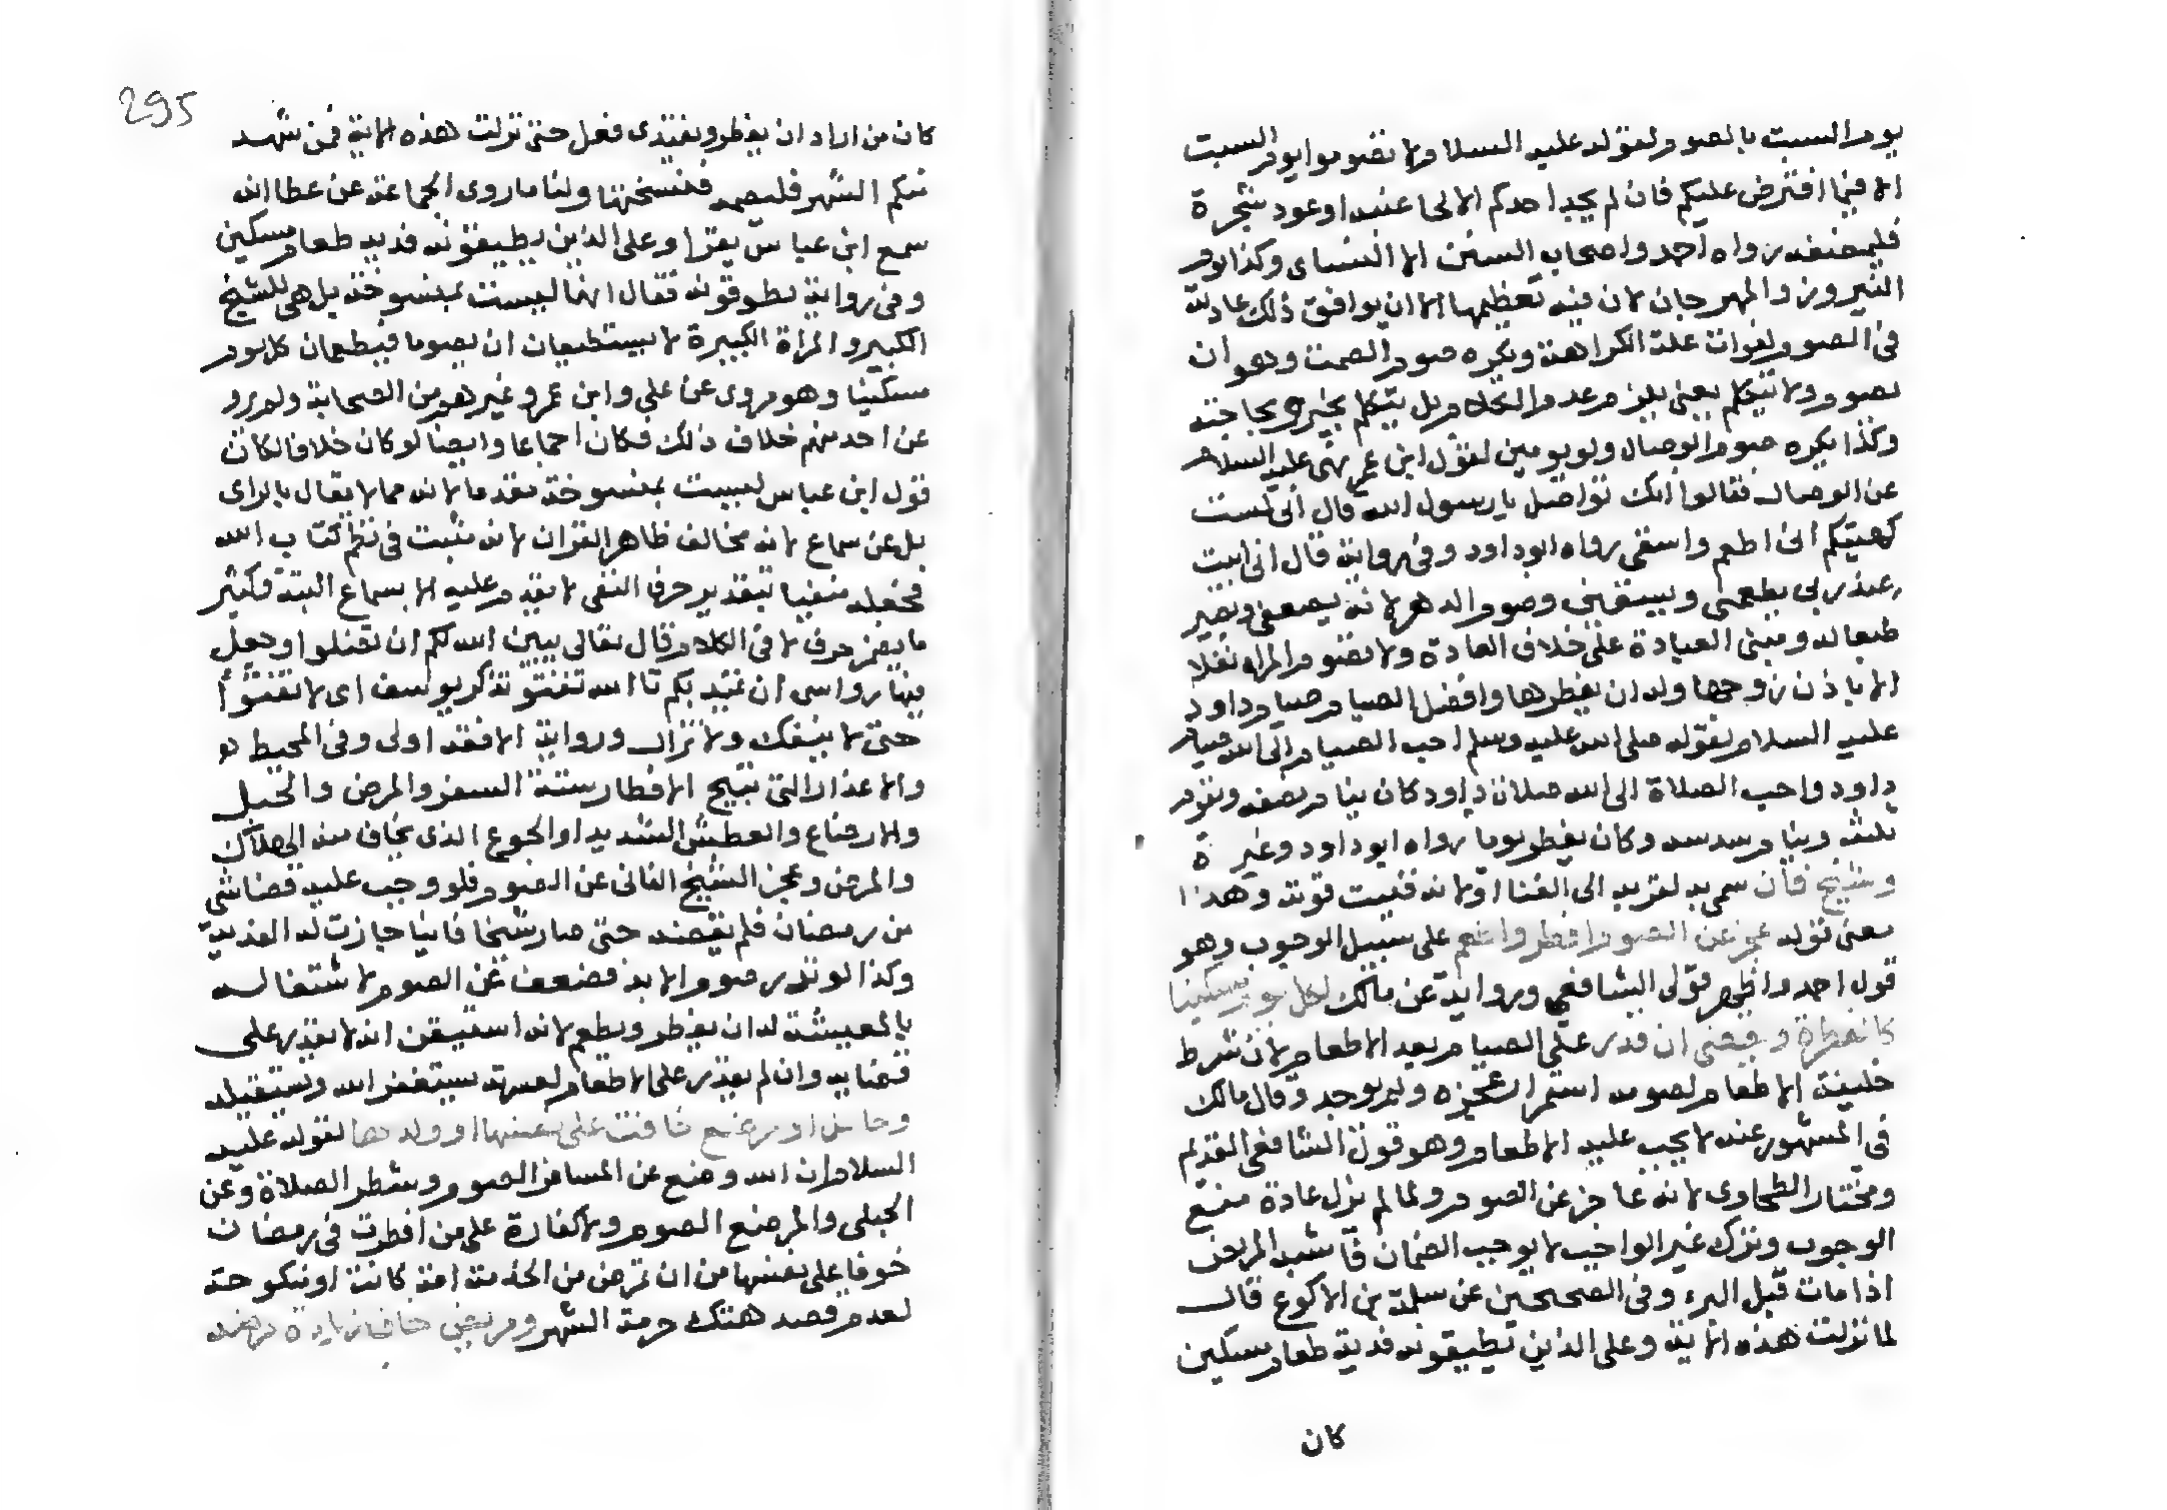 يوم السبت بالصوم لقوله عليه السلام لا تصوموا يوم السبت
الا فيما افترض عليكم فان لم يجد احدكم الا لحا عنبه او عود شجرة
فليمضغه رواه احمد واصحاب السنن الا النسائي وكذا يوم
النيروز والمهرجان لان فيه تعظيمها الا ان يوافق ذلك عادته
في الصوم لفوات علة الكراهة ويكره صوم الصمت وهو ان
يصوم ولا يتكلم يعني يلتزم عدم الكلام بل يتكلم بخير وبحاجته
وكذا يكره صوم الوصال ولو يومين لقول ابن عمر نهى عليه السلام
عن الوصال فقالوا انك تواصل يا رسول الله قال اني لست
كهيئتكم اني اطعم واسقى رواه ابو داود وفي رواية قال اني ابيت
عند ربي يطعمني ويسقيني وصوم الدهر لانه يضعفه ويصير
طبعا له ومبنى العبادة على خلاف العادة ولا تصوم المراة نفلا
الا باذن زوجها وله ان يفطرها وافضل الصيام صيام داود
عليه السلام لقوله صلى الله عليه وسلم احب الصيام الى الله صيام
داود واحب الصلاة الى الله صلاة داود كان ينام نصفه ويقوم
ثلثه وينام سدسه وكان يفطر يوما رواه ابو داود وغيره
وشيخ فان سمي به لقربه الى الفنا او لانه فنيت قوته وهذا
معنى قوله عجز عن الصوم افطر واطعم على سبيل الوجوب وهو
قول احمد واظهر قولي الشافعي ورواية عن مالك لكل يوم مسكينا
كالفطرة وقضى ان قدر على الصيام بعد الاطعام لان شرط
خليفة الاطعام لصومه استمرار عجزه ولم يوجد وقال مالك
في المشهور عنه لا يجب عليه الاطعام وهو قول الشافعي القديم
ومختار الطحاوي لانه عاجز عن الصوم ولما لم يزل عادة منع
الوجوب وترك غير الواجب لا يوجب الضمان فاشبه المريض
اذا مات قبل البرء وفي الصحيحين عن سلمة بن الاكوع قال
لما نزلت هذه الاية وعلى الذين يطيقونه فدية طعام مسكين
كان
295
كان من اراد ان يفطر ويفتدى فعل حتى نزلت هذه الاية فمن شهد
منكم الشهر فليصمه فنسختها ولنا ما روى الجماعة عن عطا انه
سمع ابن عباس يقرا وعلى الذين يطيقونه فدية طعام مسكين
وفي رواية يطوقونه فقال انها ليست بمنسوخة بل هي للشيخ
الكبير والمراة الكبيرة لا يستطيعان ان يصوما فيطعمان كل يوم
مسكينا وهو مروي عن علي وابن عمر وغيرهم من الصحابة ولم يرو
عن احد منهم خلاف ذلك فكان اجماعا وايضا لو كان خلاف لكان
قول ابن عباس ليست بمنسوخة مقدما لانه مما لا يقال بالراى
بل عن سماع لانه مخالف ظاهر القران لانه مثبت في نظم كتاب الله
فجعله منفيا بتقدير حرف النفي لا يقدم عليه الا بسماع البتة وكثير
ما يضمر حرف لا في الكلام قال تعالى يبين الله لكم ان تضلوا وجعل
فيها رواسي ان تميد بكم تا الله تفتؤ تذكر يوسف اى لا تفتؤا
حتى لا ينفك ولا تزال ورواية الافقه اولى وفي المحيط
والاعذار التي تبيح الافطار ستة السفر والمرض والحبل
والارضاع والعطش الشديد او الجوع الذى يخاف منه الهلاك
والمرض وعجز الشيخ الفاني عن الصوم فلو وجب عليه قضا شي
من رمضان فلم يقضه حتى صار شيخا فانيا جازت له الفدية
وكذا لو نذر صوم الابد فضعف عن الصوم لاشتغاله
بالمعيشة له ان يفطر ويطعم لانه استيقن انه لا يقدر على
قضايه وان لم يقدر على الاطعام لعسرته يستغفر الله ويستقيله
وحامل او مرضع خافت على نفسها او ولدها لقوله عليه
السلام ان الله وضع عن المسافر الصوم وشطر الصلاة وعن
الحبلى والمرضع الصوم ولا كفارة على من افطرت في رمضان
خوفا على نفسها من ان تمرض من الخدمة امة كانت او منكوحة
لعدم قصد هتك حرمة الشهر ومريض خاف زيادة مرضه